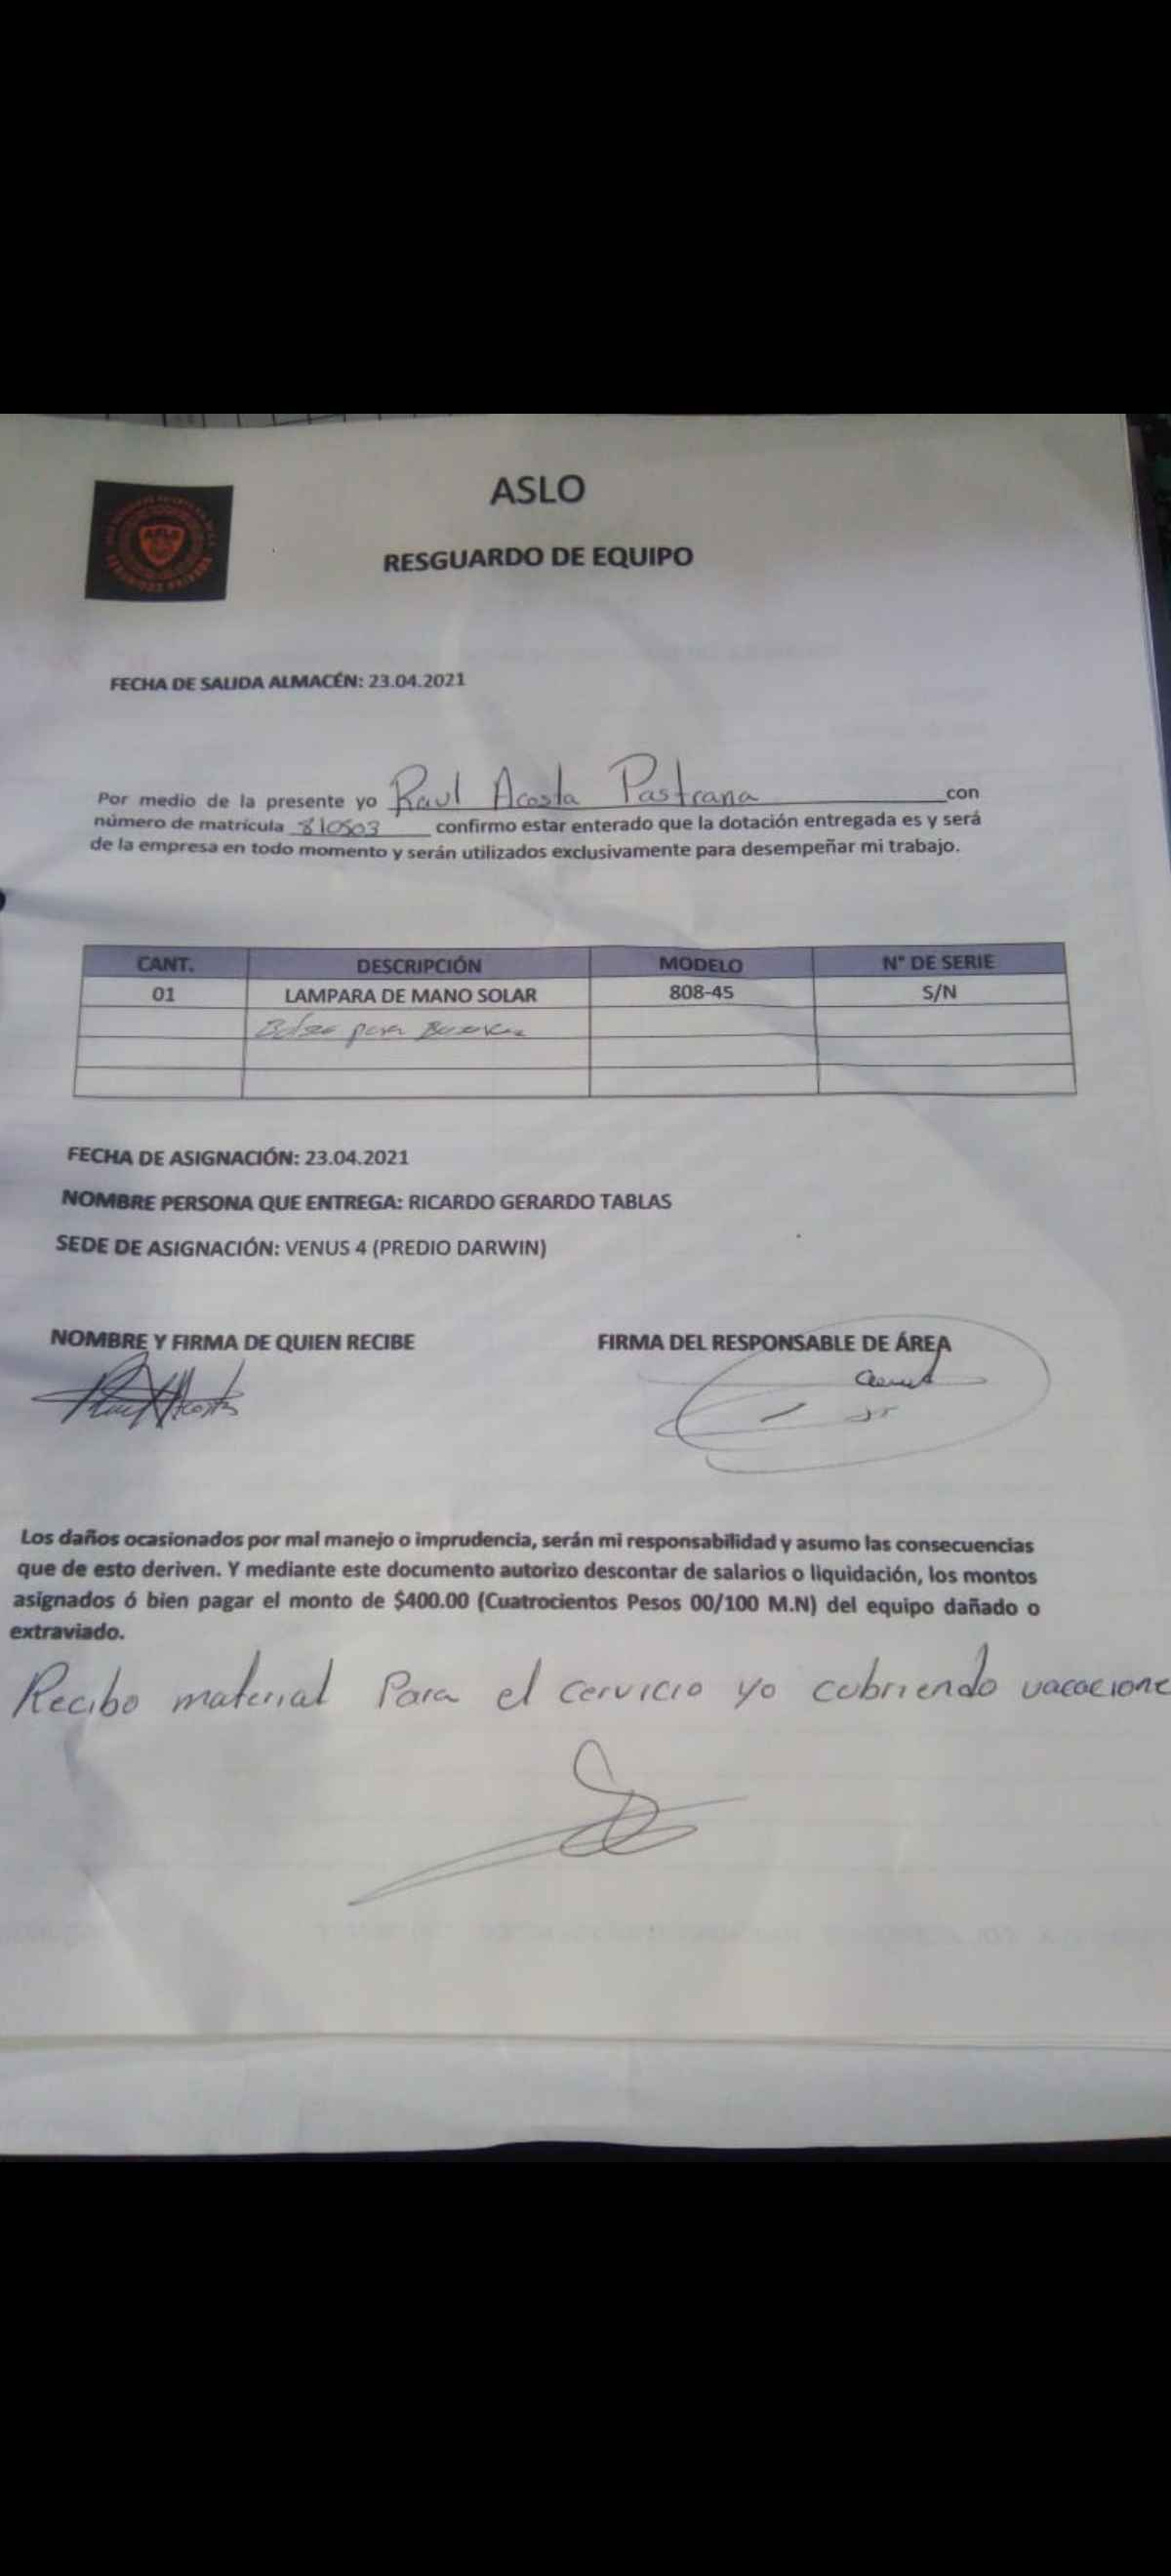 ASLO
RESGUARDO DE EQUIPO
ASLO
FECHA DE SALIDA ALMACÉN: 23.04.2021
Por medio de la presente yo Raul Acosta Pastrana con
número de matrícula 810503 confirmo estar enterado que la dotación entregada es y será
de la empresa en todo momento y serán utilizados exclusivamente para desempeñar mi trabajo.
CANT. DESCRIPCIÓN MODELO N° DE SERIE
01 LAMPARA DE MANO SOLAR 808-45 S/N
para
FECHA DE ASIGNACIÓN: 23.04.2021
NOMBRE PERSONA QUE ENTREGA: RICARDO GERARDO TABLAS
SEDE DE ASIGNACIÓN: VENUS 4 (PREDIO DARWIN)
NOMBRE Y FIRMA DE QUIEN RECIBE FIRMA DEL RESPONSABLE DE ÁREA
Los daños ocasionados por mal manejo o imprudencia, serán mi responsabilidad y asumo las consecuencias
que de esto deriven. Y mediante este documento autorizo descontar de salarios o liquidación, los montos
asignados ó bien pagar el monto de $400.00 (Cuatrocientos Pesos 00/100 M.N) del equipo dañado o
extraviado.
Recibo material Para el cervicio yo cubriendo vacacione